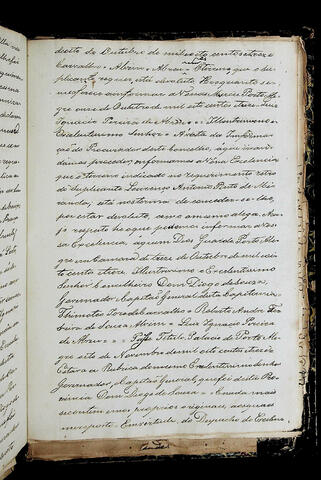 deseito de Outubro de mil oito centos e treze
Carvalho = Abreu = Abreu = Ferreira que a Su-
plicante requer, está devoluto. He quanto se
me oferece a informar a Vossas Mercês. Porto Ale-
gre onze de Outubro de mil oito centos e treze. Luis
Ignacio Pereira de Abreu = Illustrissimo e
Excelentissimo Senhor = A vista da informa-
ção do Procurador deste Concelho, a que man-
damos proceder, informamos a Vossa Excelencia
que o terreno indicado no requerimento retro
do Suplicante Lourenço Antonio Porto de Mi-
randa, está nos termos de conceder-se-lhe,
por estar devoluto, como o mesmo alega. He o
q respeito he o que podemos informar a Vos-
sa Excelencia, a quem Deos Guarde. Porto Ale-
gre em Camara de treze de Outubro de mil oito
cento e treze. Illustrissimo e Excelentissimo
Senhor Conselheiro Dom Diogo de Souza,
Governador e Capitão General desta Capitania
Thimoteo José de Carvalho = Roberto André Ri-
beiro de Souza Abreu = Luis Ignacio Pereira
de Abreu = Passe Titulo. Palacio de Porto Ale-
gre oito de Novembro de mil oito centos e treze
Estava a Rubrica do mesmo Excelentissimo Senhor
Governador, e Capitão General, que foi desta Pro-
vincia Dom Diogo de Souza = E nada mais
se contem em os proprios originaes, aos quaes
me reporto. Em virtude do Despacho do Excelen-